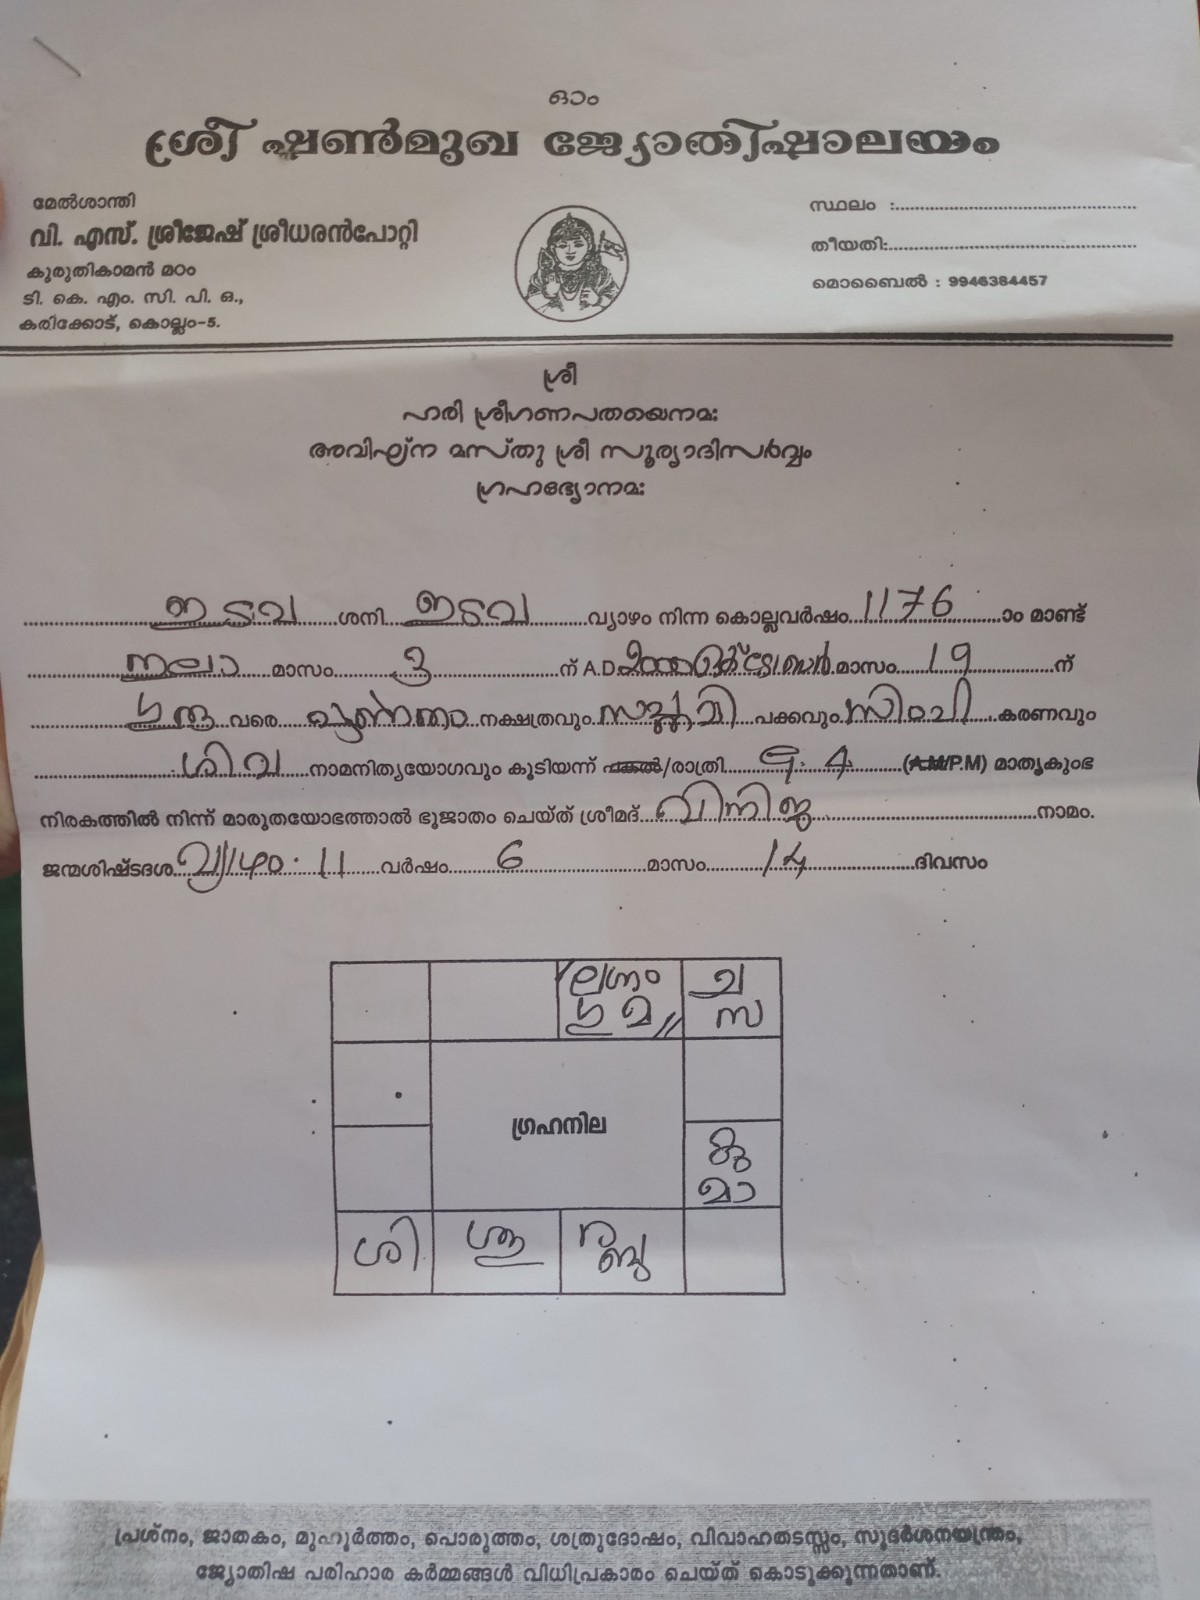 ഓം
ശ്രീ ഷൺമുഖ ജ്യോതിഷാലയം
മേൽശാന്തി
വി. എസ്. ശ്രീജേഷ് ശ്രീധരൻപോറ്റി
കുരുതികാമൻ മഠം
ടി. കെ. എം. സി. പി. ഒ.,
കരിക്കോട്, കൊല്ലം-5.
സ്ഥലം :
തീയതി:
മൊബൈൽ : 9946384457
ശ്രീ
ഹരി ശ്രീഗണപതയെനമഃ
അവിഘ്ന മസ്തു ശ്രീ സൂര്യാദിസർവ്വം
ഗ്രഹഭ്യോനമഃ
ഇടവ ശനി ഇടവ വ്യാഴം നിന്ന കൊല്ലവർഷം 1176 ാം മാണ്ട്
തുലാ മാസം 3 ന് A.D. ഒക്ടോബർ മാസം 19 ന്
ഗുരു വരെ പുണർതം നക്ഷത്രവും സപ്തമി പക്കവും സിംഹ കരണവും
ശിവ നാമനിത്യയോഗവും കൂടിയന്ന് പകൽ/രാത്രി 9. 4 (A.M/P.M) മാതൃകുംഭ
നിരകത്തിൽ നിന്ന് മാരുതയോഭത്താൽ ഭൂജാതം ചെയ്ത് ശ്രീമദ് നാമം.
ജന്മശിഷ്ടദശ വ്യാഴം 11 വർഷം 6 മാസം 14 ദിവസം
ലഗ്നം ച
ഗു മ സ
ഗ്രഹനില
കു
മാ
ശി ശു ര
ബു
പ്രശ്നം, ജാതകം, മുഹൂർത്തം, പൊരുത്തം, ശത്രുദോഷം, വിവാഹതടസ്സം, സുദർശനയന്ത്രം,
ജ്യോതിഷ പരിഹാര കർമ്മങ്ങൾ വിധിപ്രകാരം ചെയ്ത് കൊടുക്കുന്നതാണ്.